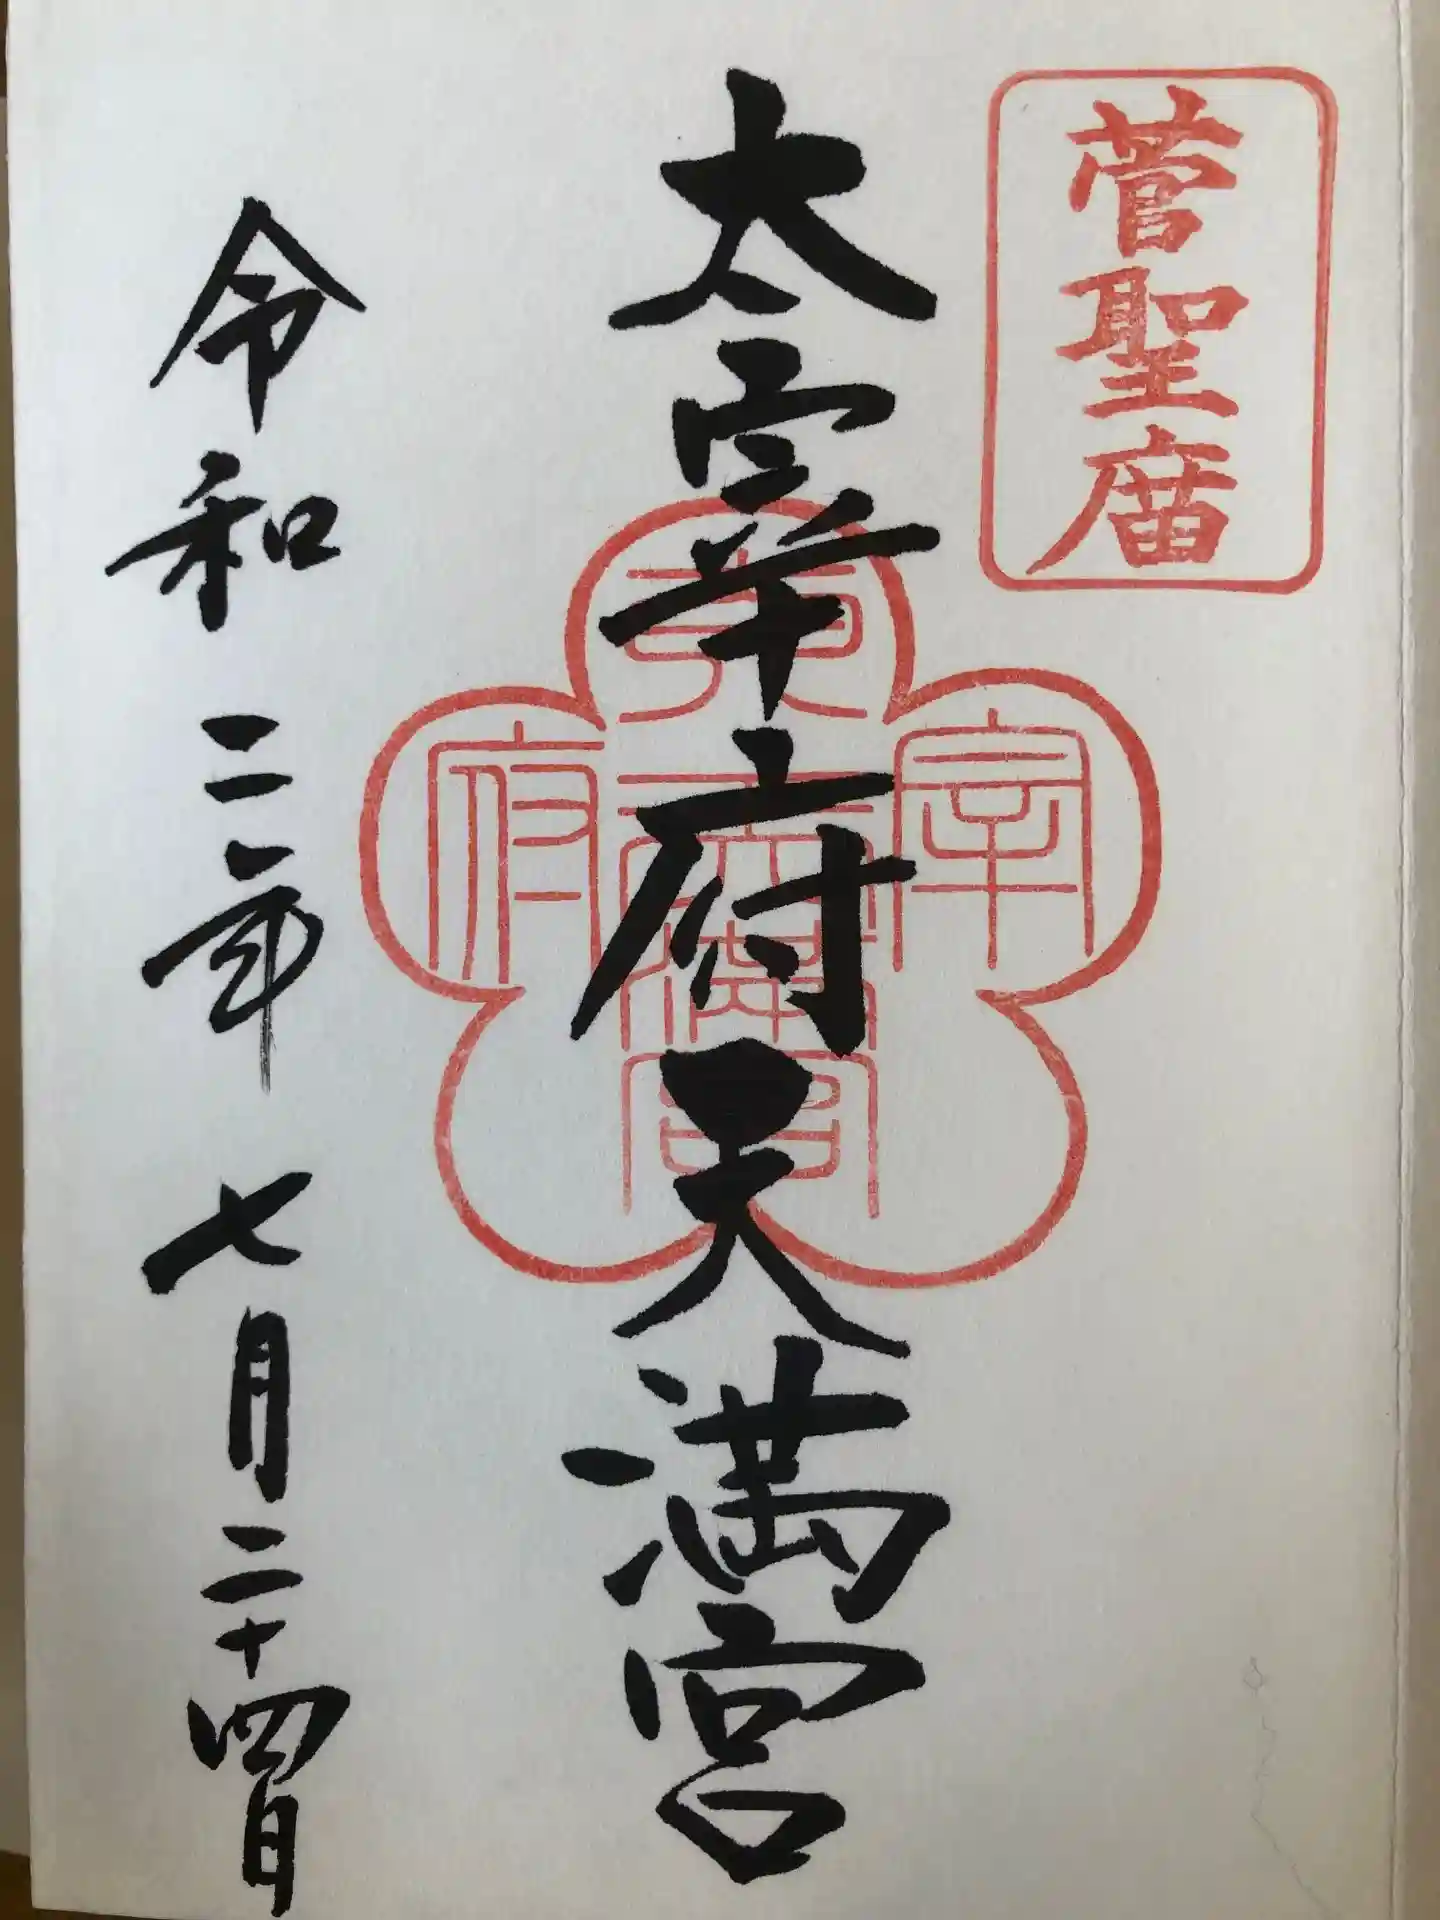 菅聖庿
太宰府天満宮
宰
府
天満宮
令和二年七月二十四日